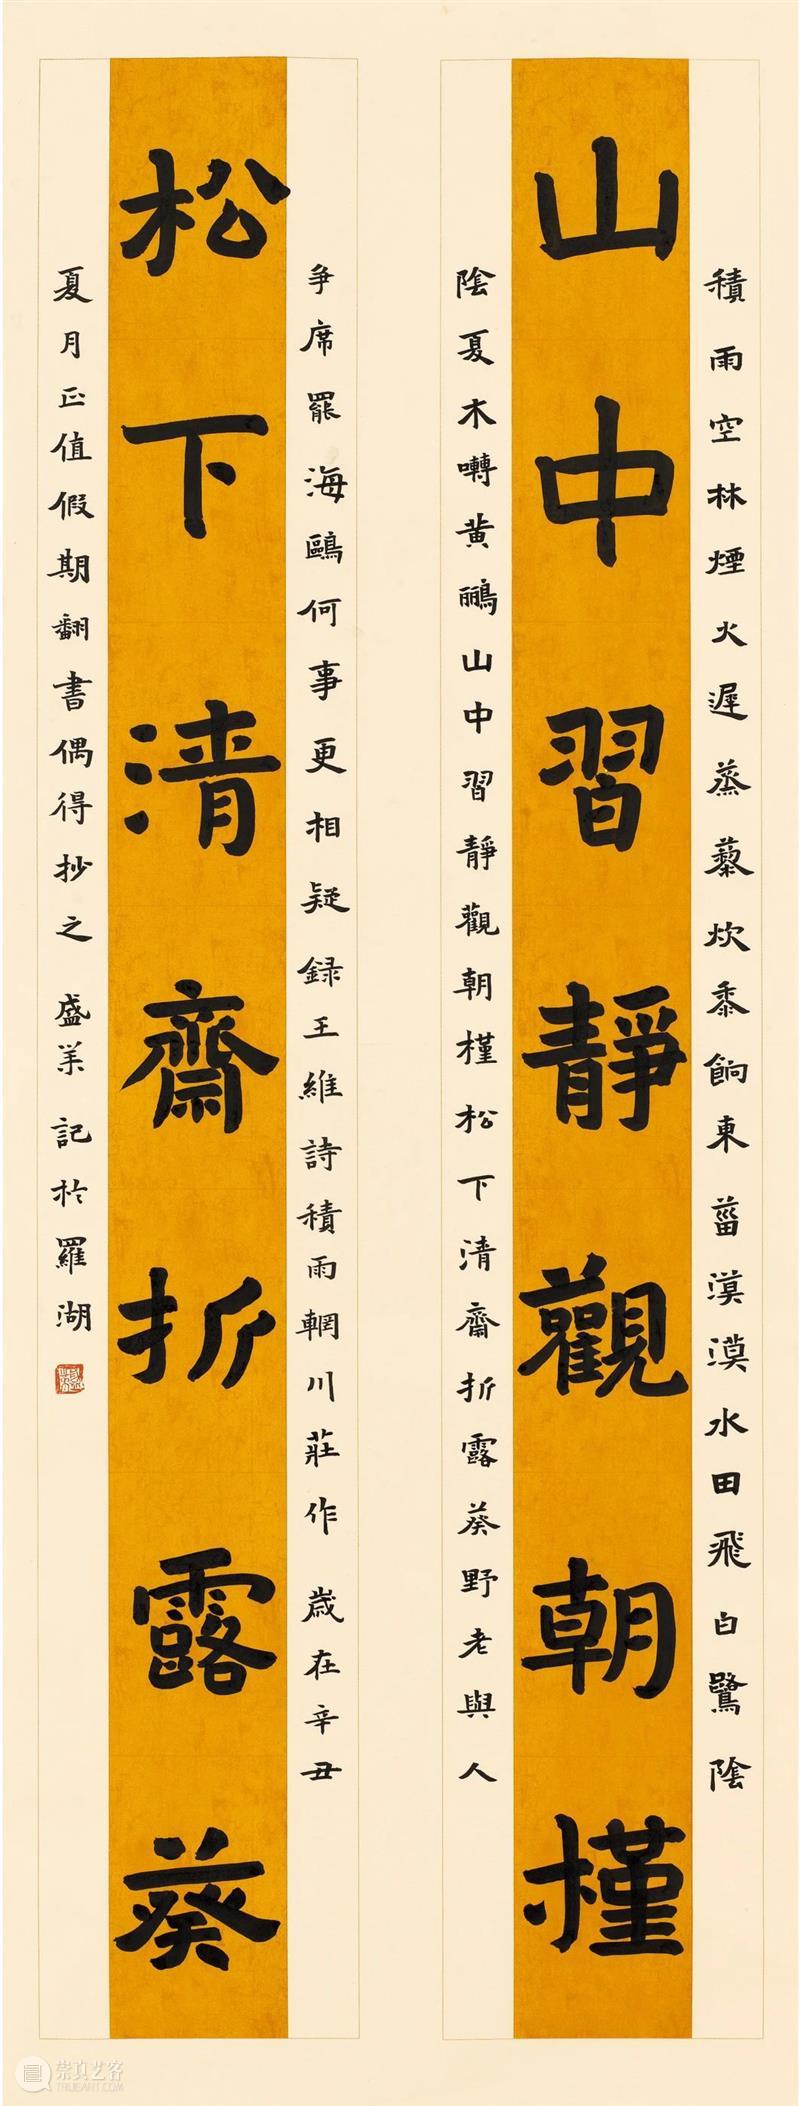 積雨空林煙火遲蒸藜炊黍餉東菑漠漠水田飛白鷺陰
山中習靜觀朝槿
陰夏木囀黃鸝山中習靜觀朝槿松下清齋折露葵野老與人
爭席罷海鷗何事更相疑録王維詩積雨輞川莊作 歲在辛丑
松下清齋折露葵
夏月正值假期翻書偶得抄之 盛羊記於羅湖
崇真艺客
TRUEART.COM